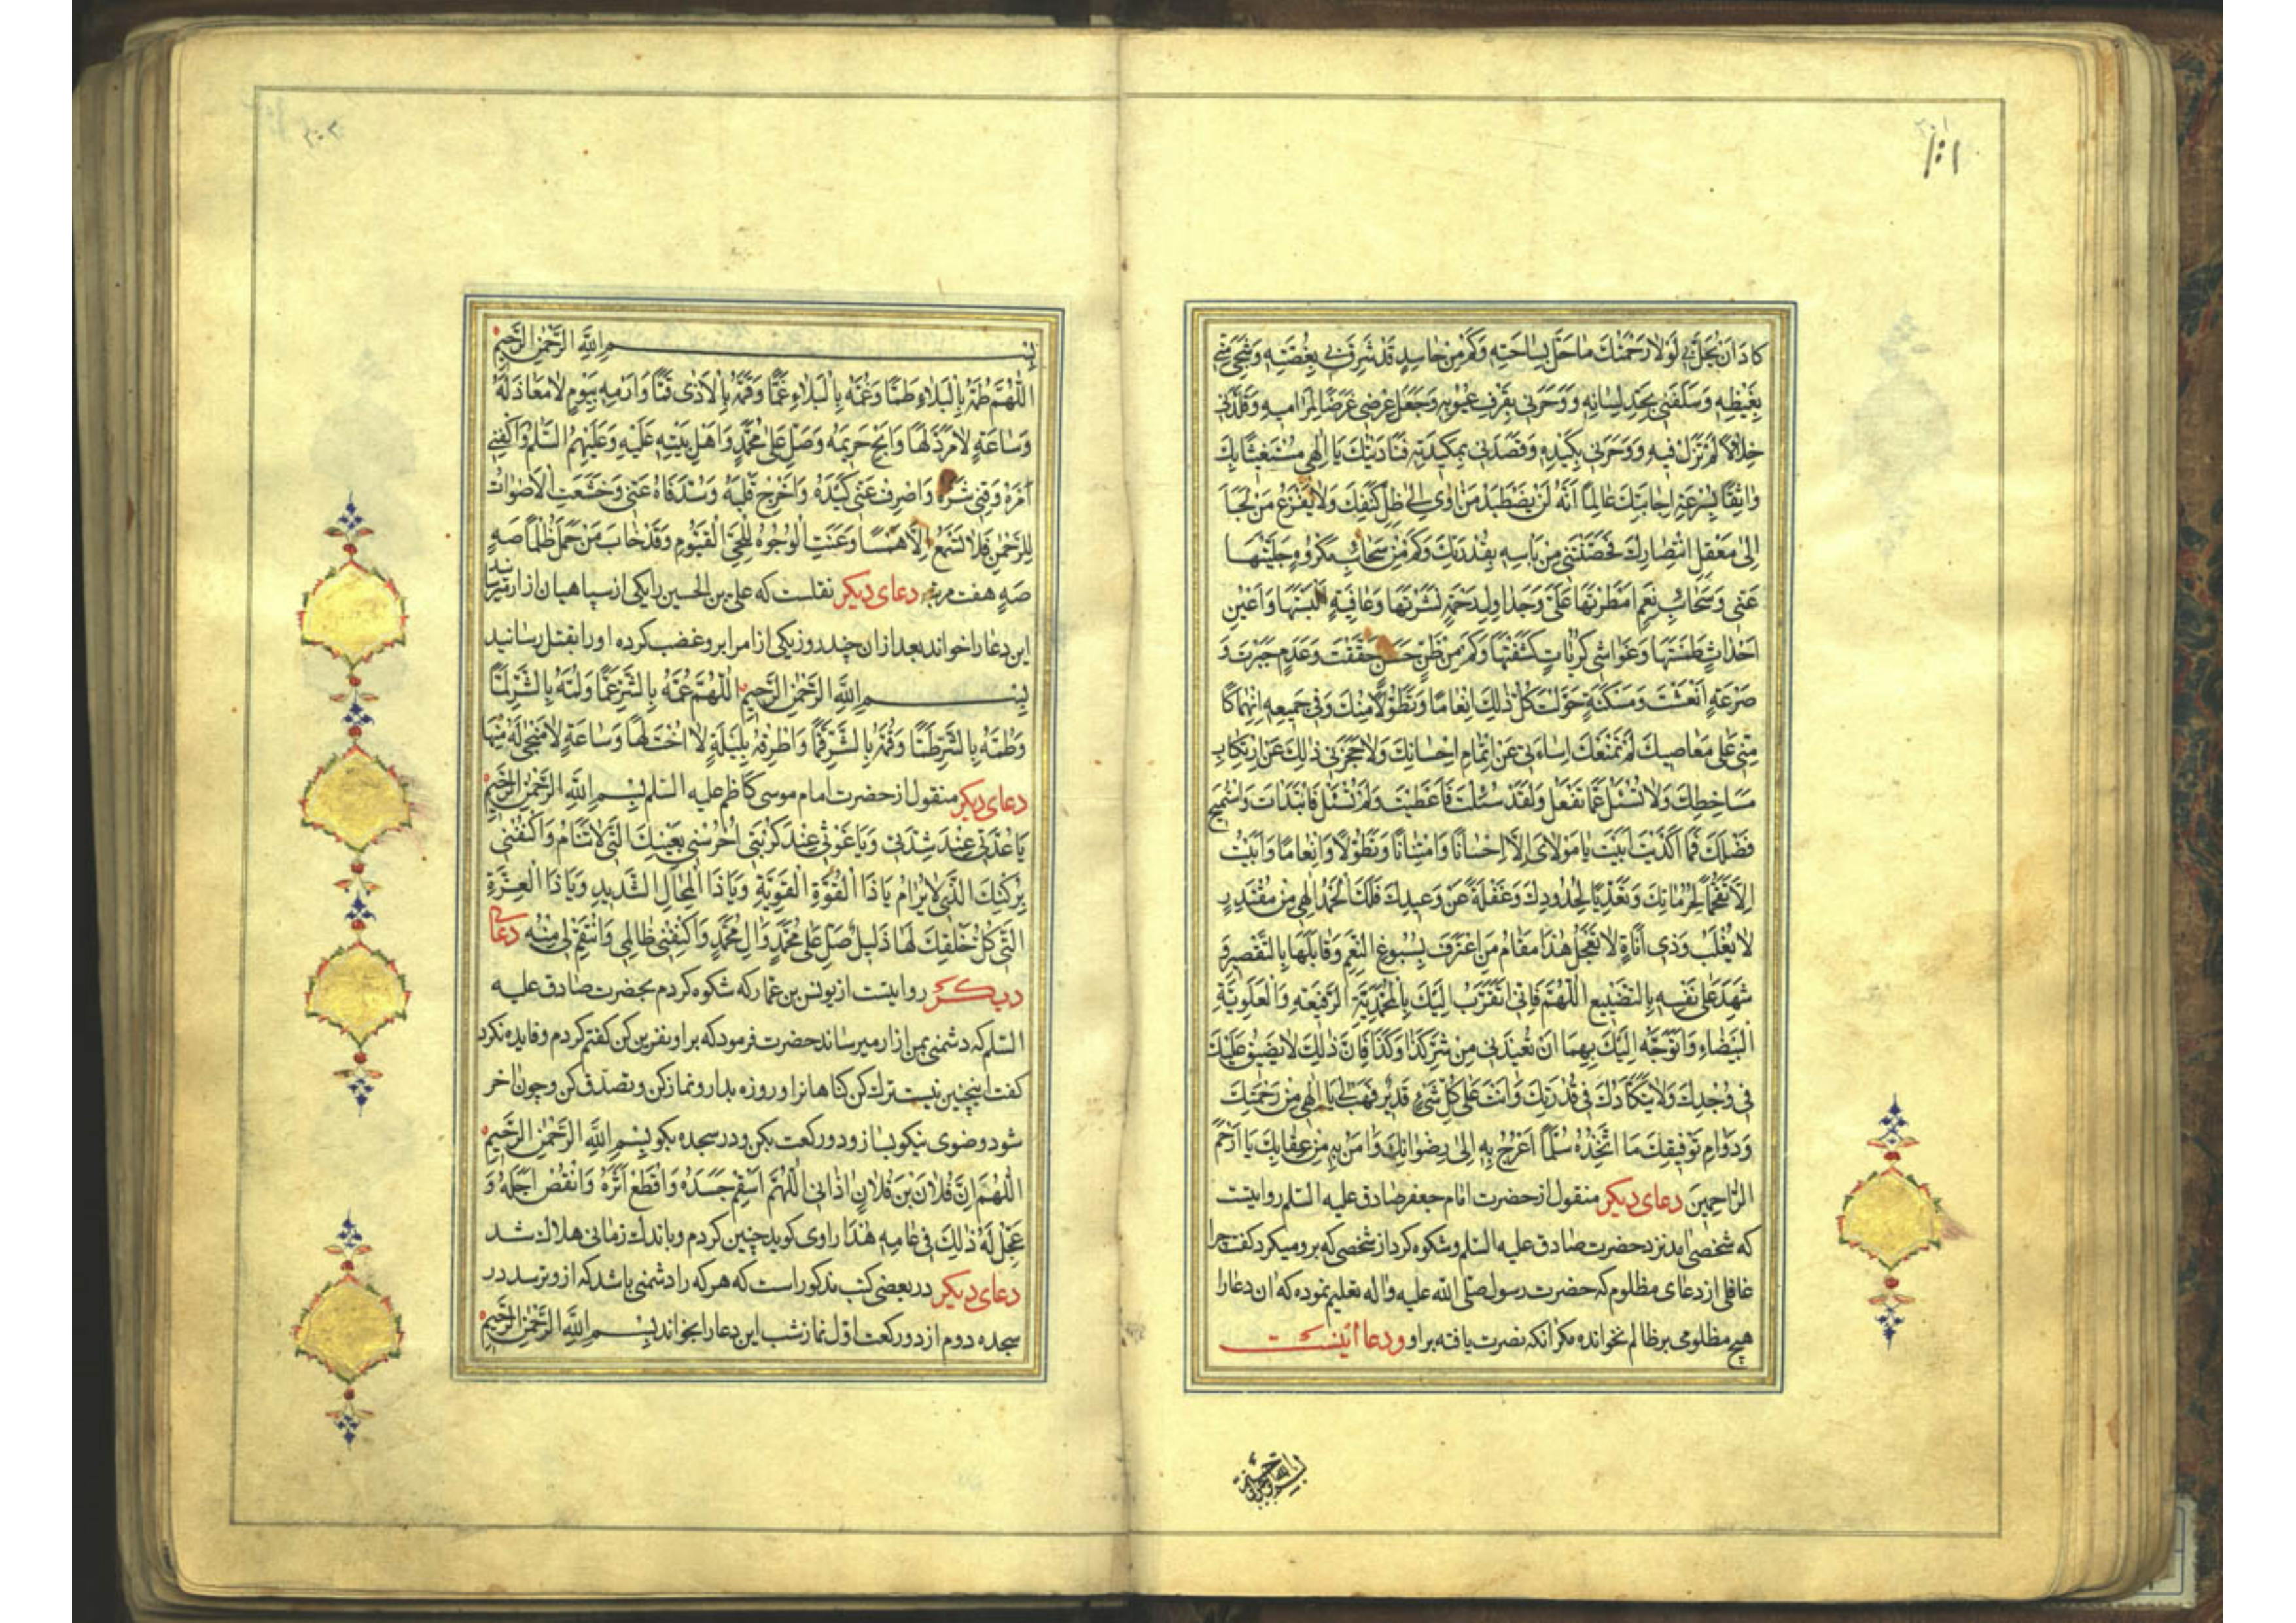 كادَ اَنْ يَحُلَّ بى لَوْلا رَحْمَتُكَ ما حَلَّ بِساحَتِهِ وَكَمْ مِنْ حاسِدٍ قَدْ شَرِقَ بى بِغُصَّتِهِ وَشَجِىَ مِنّى
بِغَيْظِهِ وَسَلَقَنى بِحَدِّ لِسانِهِ وَوَحَرَنى بِقَرْفِ عُيُوبِهِ وَجَعَلَ عِرْضى غَرَضًا لِمَراميهِ وَقَلَّدَنى
خِلالًا لَمْ تَزَلْ فيهِ وَوَحَرَنى بِكَيْدِهِ وَقَصَدَنى بِمَكيدَتِهِ فَنادَيْتُكَ يا اِلهى مُسْتَغيثًا بِكَ
واثِقًا بِسُرْعَةِ اِجابَتِكَ عالِمًا اَنَّهُ لَنْ يُضْطَهَدَ مَنْ اوى اِلى ظِلِّ كَنَفِكَ وَلا يَفْزَعُ مَنْ لَجَأَ
اِلى مَعْقِلِ انْتِصارِكَ فَحَصَّنْتَنى مِنْ بَاْسِهِ بِقُدْرَتِكَ وَكَمْ مِنْ سَحائِبِ مَكْرُوهٍ جَلَّيْتَها
عَنّى وَسَحائِبِ نِعَمٍ اَمْطَرْتَها عَلَىَّ وَجَداوِلِ رَحْمَةٍ نَشَرْتَها وَعافِيَةٍ اَلْبَسْتَها وَاَعْيُنِ
اَحْداثٍ طَمَسْتَها وَغَواشى كُرُباتٍ كَشَفْتَها وَكَمْ مِنْ ظَنٍّ حَسَنٍ حَقَّقْتَ وَعَدَمٍ جَبَرْتَ وَ
صَرْعَةٍ اَنْعَشْتَ وَمَسْكَنَةٍ حَوَّلْتَ كُلُّ ذلِكَ اِنْعامًا وَتَطَوُّلًا مِنْكَ وَفى جَميعِهِ اِنْهِماكًا
مِنّى عَلى مَعاصيكَ لَمْ تَمْنَعْكَ اِساءَتى عَنْ اِتْمامِ اِحْسانِكَ وَلا حَجَرَنى ذلِكَ عَنِ ارْتِكابِ
مَساخِطِكَ وَلا تُسْئَلُ عَمّا تَفْعَلُ وَلَقَدْ سُئِلْتَ فَاَعْطَيْتَ وَلَمْ تُسْئَلْ فَابْتَدَاْتَ وَاسْتُميحَ
فَضْلُكَ فَما اَكْدَيْتَ اَبَيْتَ يا مَوْلاىَ اِلّا اِحْسانًا وَامْتِنانًا وَتَطَوُّلًا وَاِنْعامًا وَاَبَيْتُ
اِلّا تَقَحُّمًا لِحُرُماتِكَ وَتَعَدِّيًا لِحُدُودِكَ وَغَفْلَةً عَنْ وَعيدِكَ فَلَكَ الْحَمْدُ اِلهى مِنْ مُقْتَدِرٍ
لا يُغْلَبُ وَذى اَناةٍ لا تَعْجَلُ هذا مَقامُ مَنِ اعْتَرَفَ بِسُبُوغِ النِّعَمِ وَقابَلَها بِالتَّقْصيرِ وَ
شَهِدَ عَلى نَفْسِهِ بِالتَّضْييعِ اَللّهُمَّ فَاِنّى اَتَقَرَّبُ اِلَيْكَ بِالْمُحَمَّدِيَّةِ الرَّفيعَةِ وَالْعَلَوِيَّةِ
الْبَيْضاءِ وَاَتَوَجَّهُ اِلَيْكَ بِهِما اَنْ تُعيذَنى مِنْ شَرِّ كَذا وَكَذا فَاِنَّ ذلِكَ لا يَضيقُ عَلَيْكَ
فى وُجْدِكَ وَلا يَتَكَأَّدُكَ فى قُدْرَتِكَ وَاَنْتَ عَلى كُلِّ شَىْءٍ قَديرٌ فَهَبْ لى يا اِلهى مِنْ رَحْمَتِكَ
وَدَوامِ تَوْفيقِكَ ما اَتَّخِذُهُ سُلَّمًا اَعْرُجُ بِهِ اِلى رِضْوانِكَ وَامَنُ بِهِ مِنْ عِقابِكَ يا اَرْحَمَ
الرّاحِمينَ دعاى ديكر منقول از حضرت امام جعفر صادق عليه السلم روايتست
كه شخصى امد نزد حضرت صادق عليه السلم وشكوه كرد از شخصى كه برو ميكرد كفت چرا
غافلى از دعاى مظلوم كه حضرت رسول صلى الله عليه واله تعليم نموده كه ان دعا را
هيچ مظلومى بر ظالم نخوانده مكر انكه نصرت يافته بر او ودعا اينست
بِسْمِ اللّهِ الرَّحْمنِ الرَّحيمِ
اَللّهُمَّ طُمَّهُ بِالْبَلاءِ طَمًّا وَغُمَّهُ بِالْبَلاءِ غَمًّا وَقُمَّهُ بِالْاَذى قَمًّا وَارْمِهِ بِيَوْمٍ لا مَعادَ لَهُ
وَساعَةٍ لا مَرَدَّ لَها وَاَبِحْ حَريمَهُ وَصَلِّ عَلى مُحَمَّدٍ وَاَهْلِ بَيْتِهِ عَلَيْهِ وَعَلَيْهِمُ السَّلمُ وَاكْفِنى
اَمْرَهُ وَقِنى شَرَّهُ وَاصْرِفْ عَنّى كَيْدَهُ وَاَخْرِجْ قَلْبَهُ وَسُدَّ فاهُ عَنّى وَخَشَعَتِ الْاَصْواتُ
لِلرَّحْمنِ فَلا تَسْمَعُ اِلّا هَمْسًا وَعَنَتِ الْوُجُوهُ لِلْحَىِّ الْقَيُّومِ وَقَدْ خابَ مَنْ حَمَلَ ظُلْمًا صَهٍ
صَهٍ هفت مرتبه دعاى ديكر نقلست كه على بن الحسين را يكى از سپاهيان ازار ميرسانيد
اين دعا را خواند بعد از ان چند روز يكى از امرا برو غضب كرده او را بقتل رسانيد
بِسْمِ اللّهِ الرَّحْمنِ الرَّحيمِ اَللّهُمَّ عُمَّهُ بِالشَّرِّ عَمًّا وَلُمَّهُ بِالشَّرِّ لَمًّا
وَطُمَّهُ بِالشَّرِّ طَمًّا وَقُمَّهُ بِالشَّرِّ قَمًّا وَاطْرُقْهُ بِلَيْلَةٍ لا اُخْتَ لَها وَساعَةٍ لا مَنْجى لَهُ مِنْها
دعاى ديكر منقول از حضرت امام موسى كاظم عليه السلم بِسْمِ اللّهِ الرَّحْمنِ الرَّحيمِ
يا عُدَّتى عِنْدَ شِدَّتى وَيا غَوْثى عِنْدَ كُرْبَتى اُحْرُسْنى بِعَيْنِكَ الَّتى لا تَنامُ وَاكْنُفْنى
بِرُكْنِكَ الَّذى لا يُرامُ يا ذَا الْقُوَّةِ الْقَوِيَّةِ وَيا ذَا الْمِحالِ الشَّديدِ وَيا ذَا الْعِزَّةِ
الَّتى كُلُّ خَلْقِكَ لَها ذَليلٌ صَلِّ عَلى مُحَمَّدٍ وَالِ مُحَمَّدٍ وَاكْفِنى ظالِمى وَانْتَقِمْ لى مِنْهُ دعاى
ديكر روايتست از يونس بن عمار كه شكوه كردم بحضرت صادق عليه
السلم كه دشمنى بمن ازار ميرساند حضرت فرمود كه بر او نفرين كن كفتم كردم وفايده نكرد
كفت اينچنين نيست ترك كن كناهانرا وروزه بدار ونماز كن وتصدق كن وچون اخر
شود وضوى نيكو بساز ودو ركعت بكن ودر سجده بكو بِسْمِ اللّهِ الرَّحْمنِ الرَّحيمِ
اَللّهُمَّ اِنَّ فُلانَ بْنَ فُلانٍ اذانى اَللّهُمَّ اَسْقِمْ جَسَدَهُ وَاقْطَعْ اَثَرَهُ وَانْقُصْ اَجَلَهُ وَ
عَجِّلْ لَهُ ذلِكَ فى عامِهِ هذا راوى كويد چنين كردم وباندك زمانى هلاك شد
دعاى ديكر در بعضى كتب مذكور است كه هر كه را دشمنى باشد كه ازو ترسد در
سجده دوم از دو ركعت اول نماز شب اين دعا را بخواند بِسْمِ اللّهِ الرَّحْمنِ الرَّحيمِ